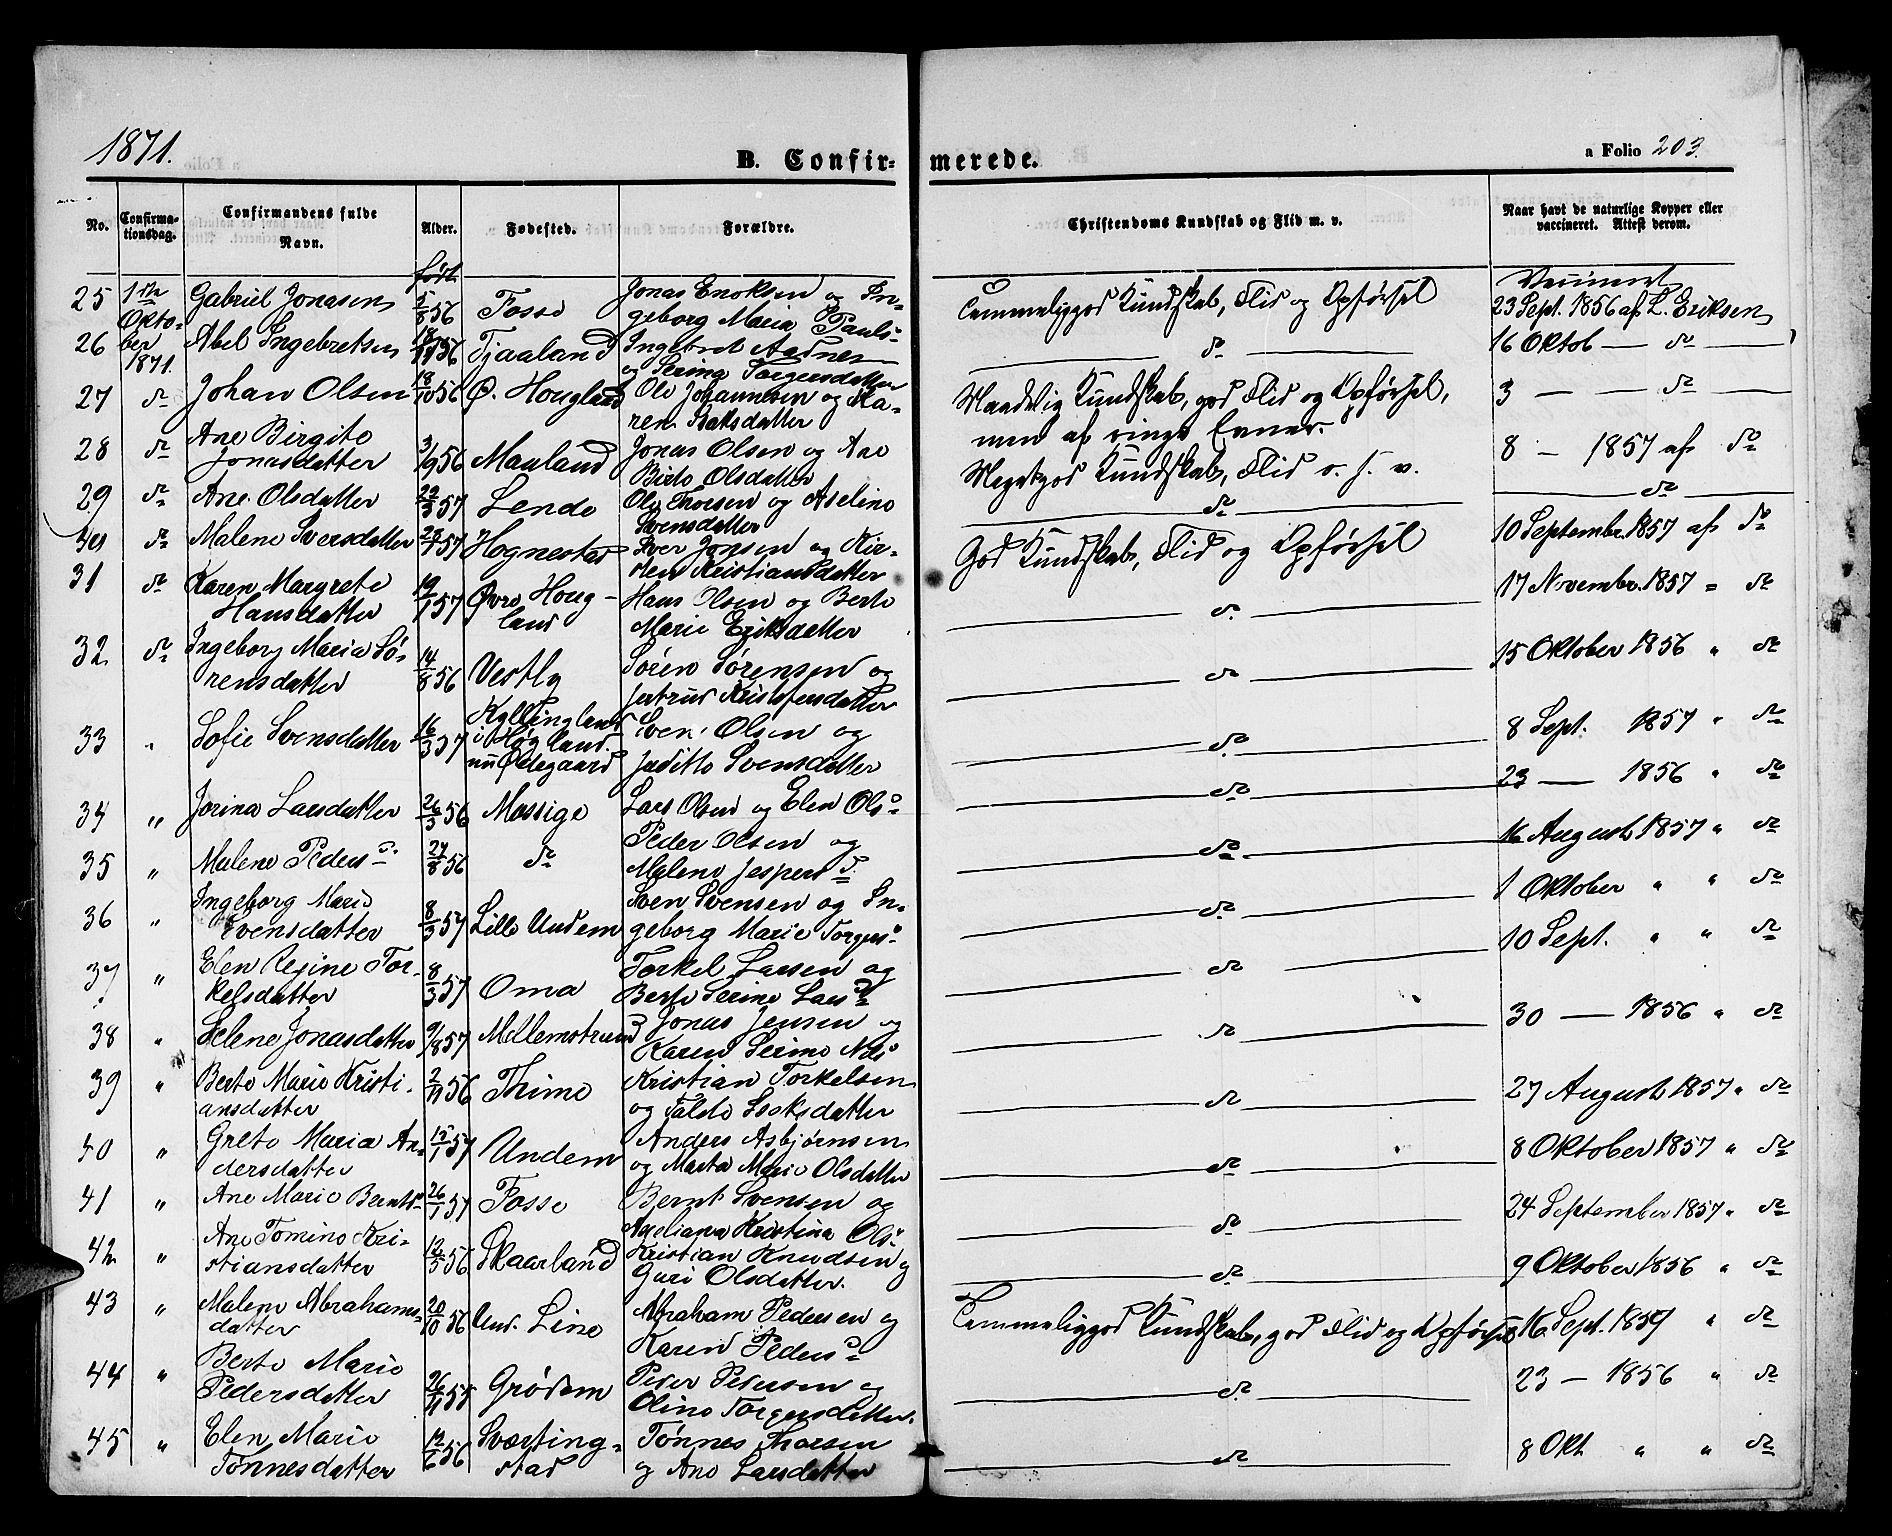 1871.
B. Confir-
merede.
a Folio 203.
No.
Confirma-
tionsdag.
Confirmandens fulde
Navn.
Alder.
Fødested.
Forældre.
Christendoms Kundskab og Flid m. v.
Naar havt de naturlige Kopper eller
vaccineret. Attest derom.
født
25 1ste Gabriel Jonasen 56 Fosse Jonas Enoksen og In-
geborg Maria Pauls- Temmeliggod Kundskab, Flid og Opførsel Vaccineret
23 Sept. 1856 af L. Eriksen
Okto-
ber
1871.
26 Abel Ingebretsen 56 Tjaaland Ingebret Aadnesen
og Serina Torgersdatter do 16 Oktob — do —
27 do Johan Olsen 18/10 56 Ø. Hougland Ole Johannesen og Ka-
ren Isaksdatter Maadelig Kundskab, god Flid og Opførsel,
men af ringe Evner. 3 — — do —
28 do Ane Birgite
Jonasdatter 3/9 56 Mauland Jonas Olsen og Ane
Birte Olsdatter Megetgod Kundskab, Flid o. s. v. 8 — 1857 af do
29 do Ane Olsdatter 57 Lende Ole Thorsen og Aseline
Svensdatter do do
30 do Malene Sversdatter 57 Hognestad Sver Jonsen og Kir-
sten Kristiansdatter God Kundskab, Flid og Opførsel 10 Septembr. 1857 af do
31 do Karen Margrete
Hansdatter 19/1 57 Øvre Houg-
land Hans Olsen og Berte
Marie Eriksdatter do 17 Novembr. 1857 " do
32 do Ingeborg Maria Sø-
rensdatter 14/8 56 Vestly Sören Sørensen og
Jertrud Kristofersdatter do 15 Oktober 1856 " do
33 " Sofie Svensdatter 16/3 57 Kyllingland
i Høgland.
nu Ødegaard Sven Olsen og
Juditte Svensdatter do 8 Sept. 1857 " do
34 " Jorina Larsdatter 26/3 56 Mossige Lars Olsen og Elen Ols- do 23 — 1856 " do
35 " Malene Peders d. 24/8 56 do Peder Olsen og
Malene Jespers d. do 16 August 1857 " do
36 " Ingeborg Marie
Svensdatter 8/3 57 Lille Undem Sven Svensen og In-
geborg Marie Torgers- do 1 Oktober " " do
37 " Elen Regine Tor-
kelsdatter 8/3 57 Oma Torkel Larsen og
Berte Serine Lars d. do 10 Sept. " " do
38 " Selene Jonasdatter 9/8 57 Mellemstrand Jonas Jensen og
Karen Serine Nils d. do 30 — 1856 " do
39 " Berte Marie Kristi-
ansdatter 2/11 56 Thime Kristian Torkelsen
og Talde Isaksdatter do 27 August 1857 " do
40 " Grete Maria An-
dersdatter 15/1 57 Undem Anders Asbjørnsen
og Marta Marie Olsdatter do 8 Oktober 1857 " do
41 " Ane Marie Bernts d. 26/1 57 Fosse Bernt Svensen og
Axeliana Kristina Ols- do 24 September 1857 " do
42 " Ane Tomine Kri-
stiansdatter 12/5 56 Skaarland Kristian Knudsen og
Guri Olsdatter. do 9 Oktober 1856 " do
43 " Malene Abrahams-
datter 20/10 56 Und. Line Abraham Pedersen og
Karen Peders d. Temmeliggod Kundskab, god Flid og Opførsel 16 Sept. 1857 " do
44 " Berte Marie
Pedersdatter 26/11 55 Grödem Peder Pedersen og
Oline Torgersdatter. do 23 — 1856 " do
45 " Elen Marie
Tönnesdatter 12/6 56 Sværting-
stad Tönnes Thorsen
og Ane Larsdatter do 8 Okt. " " do